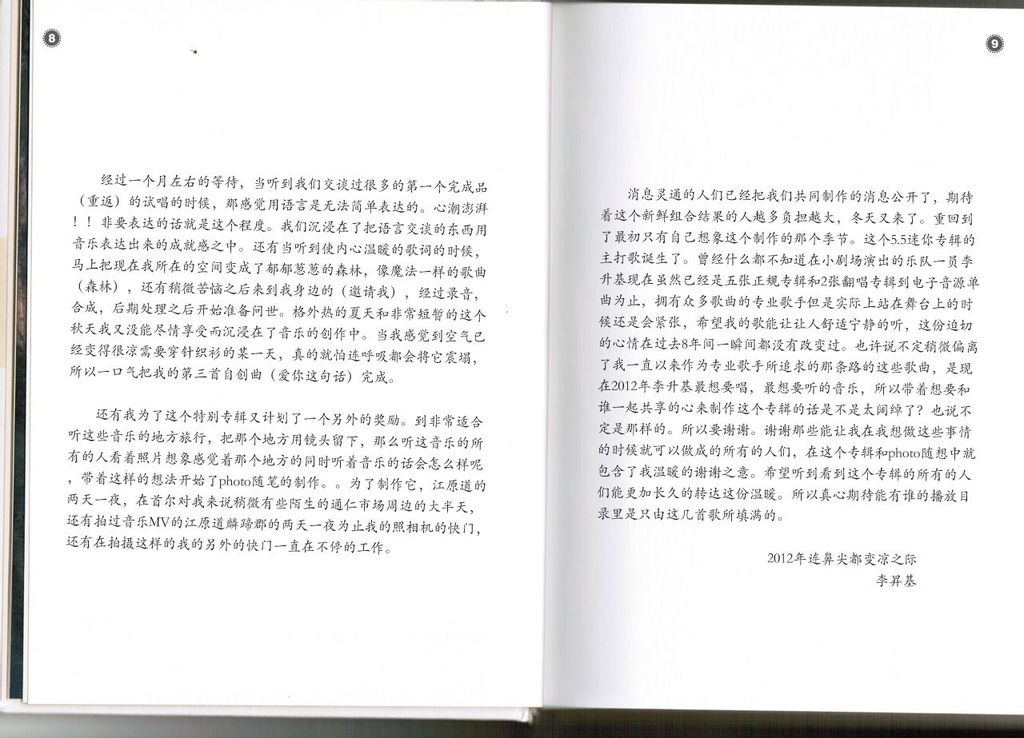 8
经过一个月左右的等待，当听到我们交谈过很多的第一个完成品
（重返）的试唱的时候，那感觉用语言是无法简单表达的。心潮澎湃
！！非要表达的话就是这个程度。我们沉浸在了把语言交谈的东西用
音乐表达出来的成就感之中。还有当听到使内心温暖的歌词的时候，
马上把现在我所在的空间变成了郁郁葱葱的森林，像魔法一样的歌曲
（森林），还有稍微苦恼之后来到我身边的（邀请我），经过录音，
合成，后期处理之后开始准备问世。格外热的夏天和非常短暂的这个
秋天我又没能尽情享受而沉浸在了音乐的创作中。当我感觉到空气已
经变得很凉需要穿针织衫的某一天，真的就怕连呼吸都会将它震塌，
所以一口气把我的第三首自创曲（爱你这句话）完成。
还有我为了这个特别专辑又计划了一个另外的奖励。到非常适合
听这些音乐的地方旅行，把那个地方用镜头留下，那么听这音乐的所
有的人看着照片想象感觉着那个地方的同时听着音乐的话会怎么样呢
，带着这样的想法开始了photo随笔的制作。。为了制作它，江原道的
两天一夜，在首尔对我来说稍微有些陌生的通仁市场周边的大半天，
还有拍过音乐MV的江原道麟蹄郡的两天一夜为止我的照相机的快门，
还有在拍摄这样的我的另外的快门一直在不停的工作。
9
消息灵通的人们已经把我们共同制作的消息公开了，期待
着这个新鲜组合结果的人越多负担越大，冬天又来了。重回到
了最初只有自己想象这个制作的那个季节。这个5.5迷你专辑的
主打歌诞生了。曾经什么都不知道在小剧场演出的乐队一员李
升基现在虽然已经是五张正规专辑和2张翻唱专辑到电子音源单
曲为止，拥有众多歌曲的专业歌手但是实际上站在舞台上的时
候还是会紧张，希望我的歌能让让人舒适宁静的听，这份迫切
的心情在过去8年间一瞬间都没有改变过。也许说不定稍微偏离
了我一直以来作为专业歌手所追求的那条路的这些歌曲，是现
在2012年李升基最想要唱，最想要听的音乐，所以带着想要和
谁一起共享的心来制作这个专辑的话是不是太阔绰了？也说不
定是那样的。所以要谢谢。谢谢那些能让我在我想做这些事情
的时候就可以做成的所有的人们，在这个专辑和photo随想中就
包含了我温暖的谢谢之意。希望听到看到这个专辑的所有的人
们能更加长久的转达这份温暖。所以真心期待能有谁的播放目
录里是只由这几首歌所填满的。
2012年连鼻尖都变凉之际
李昇基